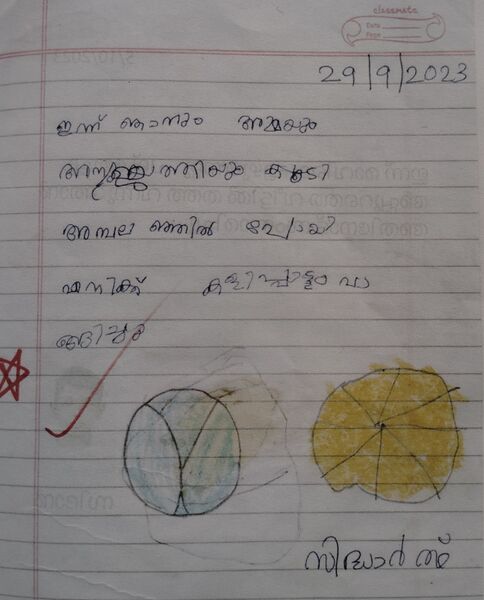 classmate
Date
Page
29/9/2023
ഇന്ന് ഞാനും അമ്മയും
കൂടി
അമ്പല ത്തിൽ പോയി
എനിക്ക് കളിപ്പാട്ടം വാ
ങ്ങിച്ചു
സിദ്ധാർത്ഥ്